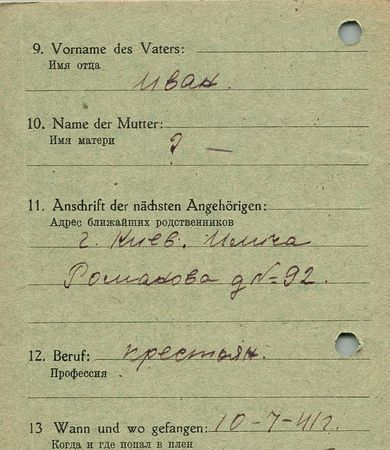 9. Vorname des Vaters:
Имя отца
Иван.
10. Name der Mutter:
Имя матери
? —
11. Anschrift der nächsten Angehörigen:
Адрес ближайших родственников
г. Киев. Илича
Романова д № 92.
12. Beruf: крестьян.
Профессия
13 Wann und wo gefangen: 10-7-41г.
Когда и где попал в плен